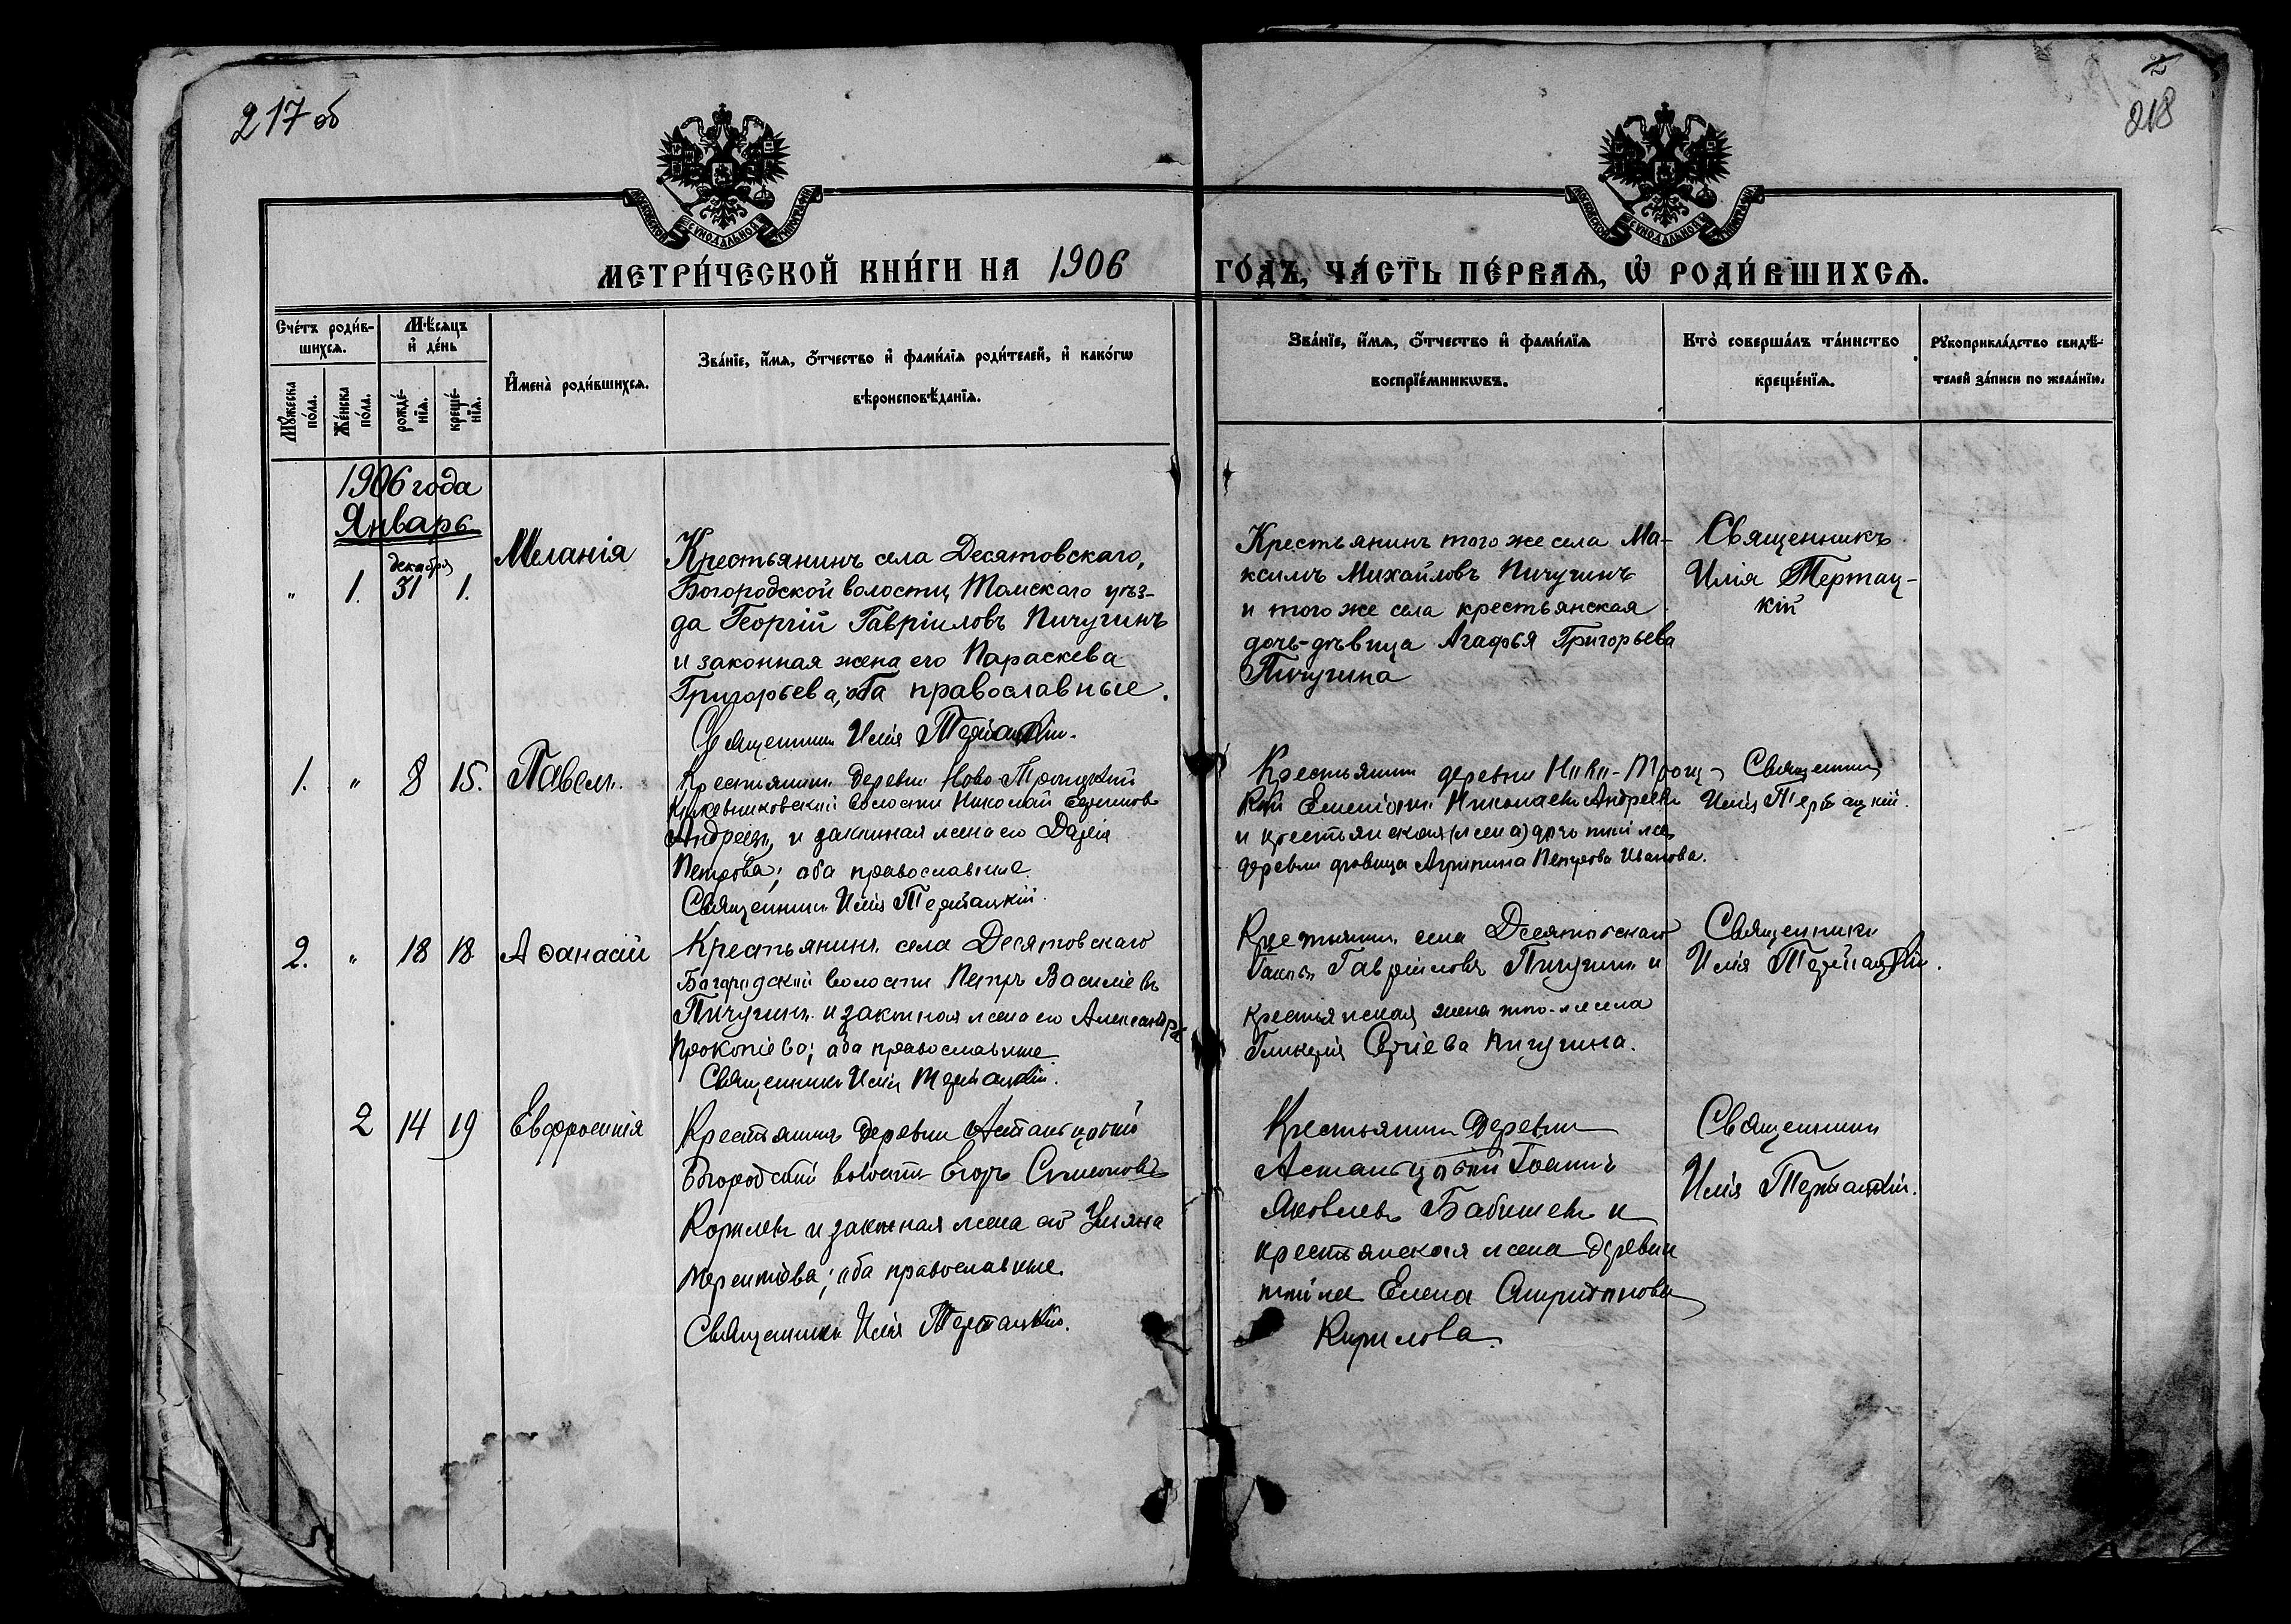 217 об
2
218
МОСКОВСКОЙ СѴНОДАЛЬНОЙ ТИПОГРАФІИ
МОСКОВСКОЙ СѴНОДАЛЬНОЙ ТИПОГРАФІИ
МЕТРИ́ЧЕСКОЙ КНИ́ГИ НА 1906 ГО́ДЪ, ЧА́СТЬ ПЕ́РВАѦ, Ѡ҆ РОДИ́ВШИХСѦ.
Сче́тъ роди́в-
шихсѧ.
Мꙋ́жеска
по́ла.
Же́нска
по́ла.
Мѣ́сѧцъ
и҆ де́нь
рожде́-
нїѧ.
креще́-
нїѧ.
И҆мена̀ роди́вшихсѧ.
Зва́нїе, и҆́мѧ, ѻ҆́тчество и҆ фами́лїѧ роди́телей, и҆ како́гѡ
вѣроисповѣ́данїѧ.
Зва́нїе, и҆́мѧ, ѻ҆́тчество и҆ фами́лїѧ
воспрїе́мникѡвъ.
Кто̀ соверша́лъ та́инство
креще́нїѧ.
Рꙋкоприкла́дство свидѣ́-
телей за́писи по жела́нїю.
1906 года
Январь
„ 1. декабря 31 1.
Меланія
Крестьянинъ села Десятовскаго,
Богородской волости, Томскаго уѣз-
да Георгій Гавріиловъ Пичугинъ
и законная жена его Параскева
Григорьева, оба православные.
Священникъ Илія Тертацкій.
Крестьянинъ того же села Ма-
ксимъ Михайловъ Пичугинъ
и того же села крестьянская
дочь-дѣвица Агафья Григорьева
Пичугина
Священникъ
Илія Тертац-
кій
1. „ 8 15.
Павелъ.
Крестьянинъ деревни Ново-Троицкой
Кожевниковской волости Николай
Андреевъ, и законная жена его Дарія
Петрова; оба православные.
Священникъ Илія Тертацкій.
Крестьянинъ деревни Ново-Троиц-
кой Николаевъ Андреевъ
и крестьянская (жена) дочь той же
деревни дѣвица Агрипина Петрова Иванова.
Священникъ
Илія Тертацкій.
2. „ 18 18
Аѳанасій
Крестьянинъ села Десятовскаго
Богородской волости Петръ Василіевъ
Пичугинъ и законная жена его Александра
Прокопіева; оба православные.
Священникъ Илія Тертацкій.
Крестьянинъ села Десятовскаго
Гавріиловъ Пичугинъ и
крестьянская жена того-же села
Гликерія Сергіева Пичугина.
Священникъ
Илія Тертацкій.
2 14 19
Евфросинія
Крестьянинъ деревни Астальцовой
Богородской волости Егоръ Симеоновъ
и законная жена его Ульяна
Терентіева; оба православные.
Священникъ Илія Тертацкій.
Крестьянинъ деревни
Астальцовой Іоаннъ
Яковлевъ Бабишевъ и
крестьянская жена деревни
той же Елена Спиридонова
Кирилова.
Священникъ
Илія Тертацкій.